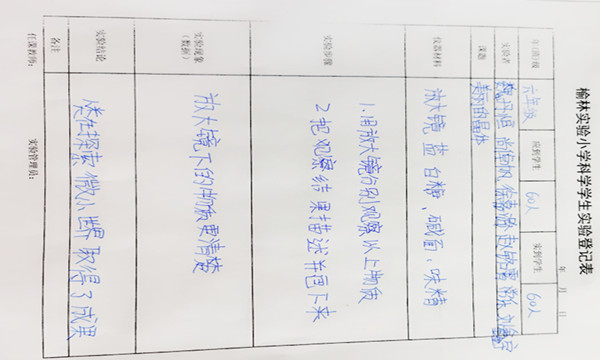 榆林实验小学科学学生实验登记表
年 月 日
年(班)级 六年级 应到学生 60人 实到学生 60人
实验者
课题 美丽的晶体
仪器材料 放大镜 盐 白糖、碱面、味精
实验步骤 1.用放大镜分别观察以上物质
2把观察结果描述并画下来
实验现象
(数据) 放大镜下的物质更清楚
实验结论 人类在探索微小世界取得了成果
备注
任课教师: 实验管理员: